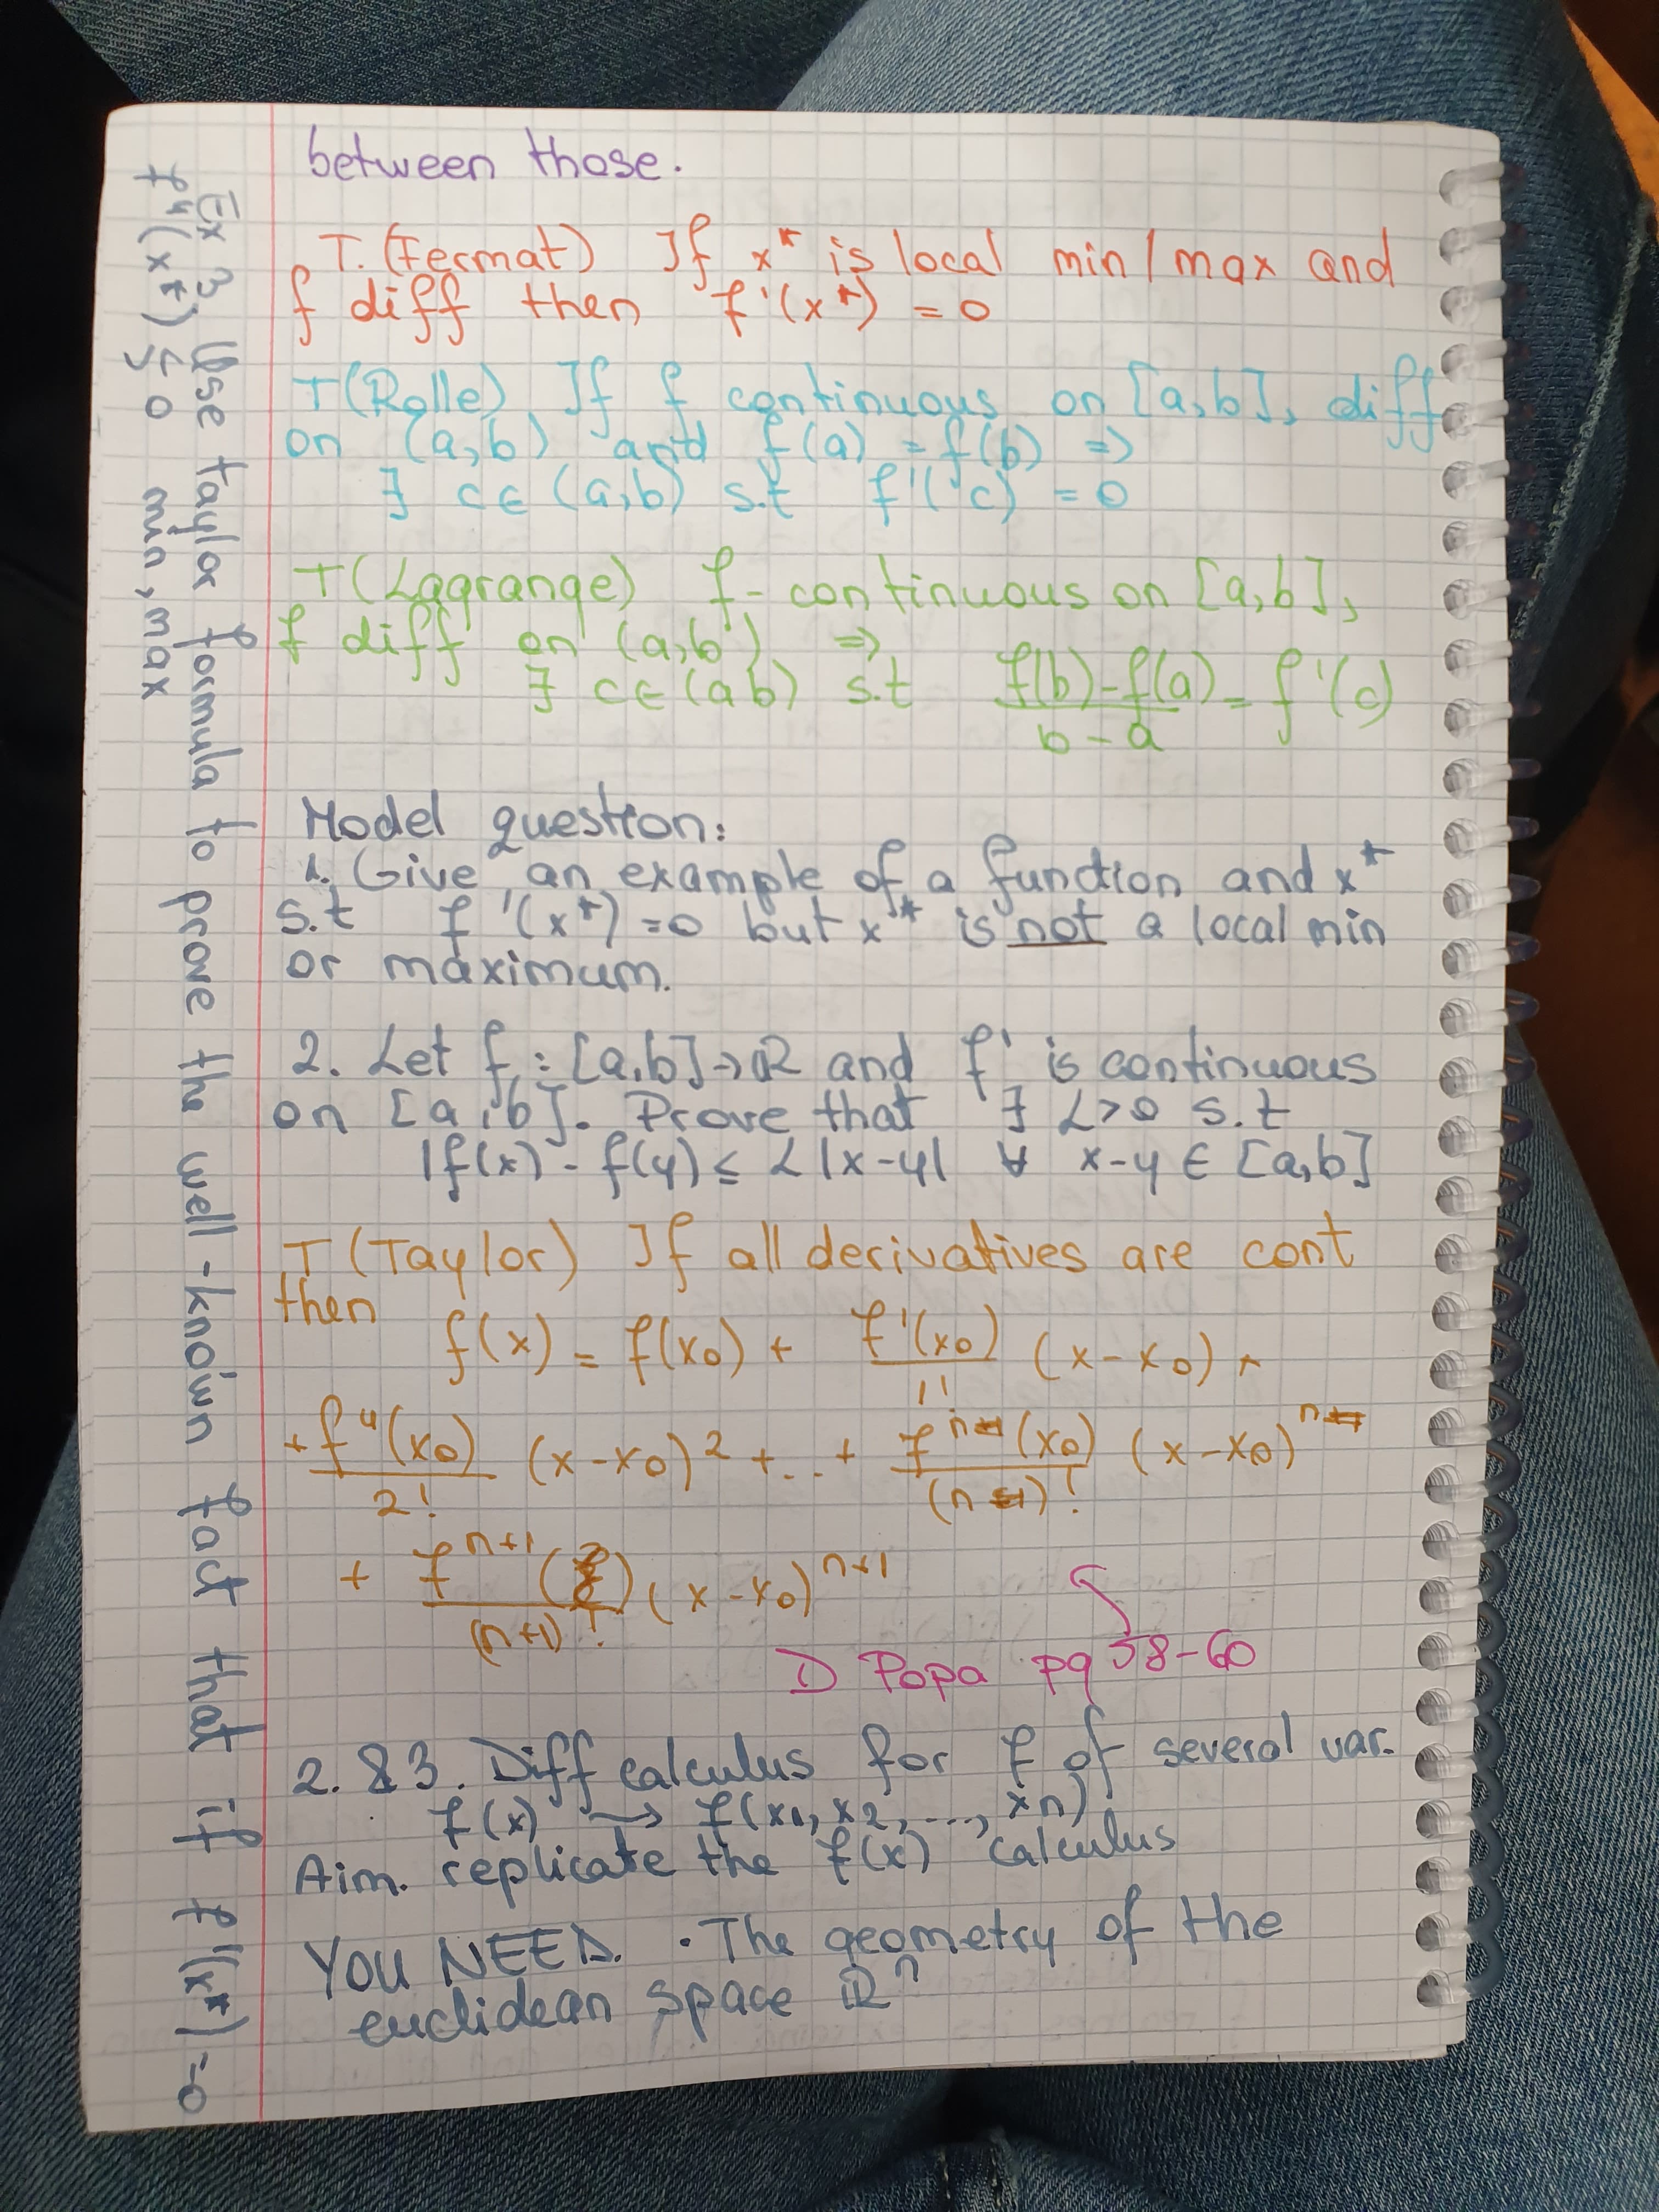 between those.
T. (Fermat) If x* is local min/max and
f diff then f'(x*) = 0
T(Rolle) If f continuous on [a,b], diff
on (a,b) and f(a) = f(b) =>
∃ c∈ (a,b) s.t f'(c) = 0
T(Lagrange) f- continuous on [a,b],
f diff on (a,b) =>
∃ c∈ (a b) s.t f(b)-f(a)/b-a = f'(c)
Model question:
1. Give an example of a function and x*
s.t f'(x*)=0 but x* is not a local min
or maximum.
2. Let f : [a,b]→ℝ and f' is continuous
on [a,b]. Prove that ∃ L>0 s.t
|f(x) - f(y) ≤ L |x-y| ∀ x-y ∈ [a,b]
T (Taylor) If all derivatives are cont
then
f(x) = f(x0) + f'(x0)/1! (x-x0) +
+ f''(x0)/2! (x-x0)² +...+ fⁿ(x0)/(n)! (x-x0)ⁿ
+ fⁿ⁺¹( )/(n+1)! (x-x0)ⁿ⁺¹
D Popa pg 58-60
2. & 3. Diff calculus for f of several var.
f(x) → f(x1, x2, ..., xn)
Aim. replicate the f(x) calculus
YOU NEED. • The geometry of the
euclidean space ℝⁿ
Ex 3 Use taylor formula to prove the well-known fact that if f'(x*)=0
f''(x*) ≶ 0 min, max